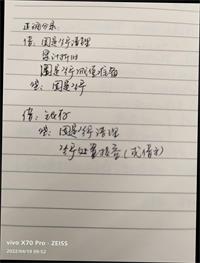 正确分录:
借:固定资产清理
累计折旧
固定资产减值准备
贷:固定资产
借:
贷:固定资产清理
资产处置损益(或借方)
vivo X70 Pro · ZEISS
2022/04/19 09:52